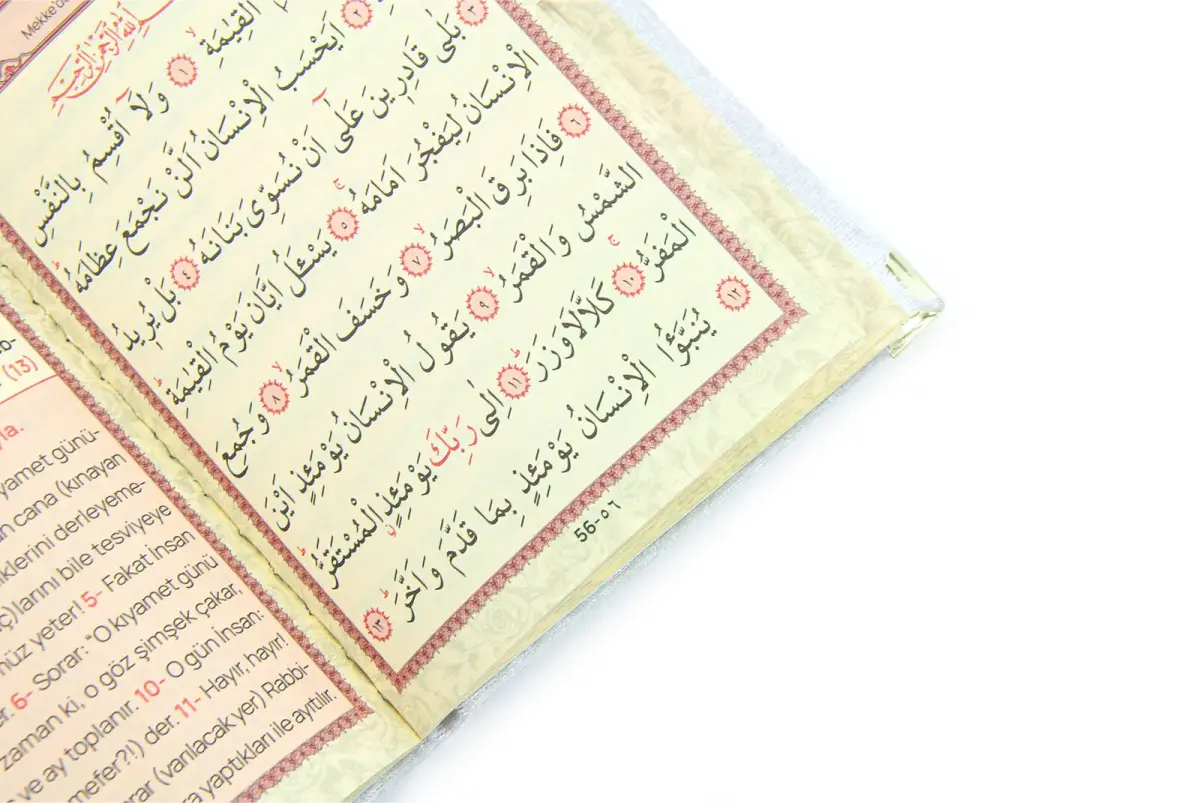 Mekke'de
اللّٰهِ الرَّحْمٰنِ الرَّحِيمِ
الْقِيٰمَةِ ١ وَلَٓا اُقْسِمُ بِالنَّفْسِ
٢ اَيَحْسَبُ الْاِنْسَانُ اَلَّنْ نَجْمَعَ عِظَامَهُ
٣ بَلٰى قَادِرِينَ عَلٰٓى اَنْ نُسَوِّىَ بَنَانَهُ ٤ بَلْ يُرِيدُ
الْاِنْسَانُ لِيَفْجُرَ اَمَامَهُ ٥ يَسْـَٔلُ اَيَّانَ يَوْمُ الْقِيٰمَةِ
٦ فَاِذَا بَرِقَ الْبَصَرُ ٧ وَخَسَفَ الْقَمَرُ ٨ وَجُمِعَ
الشَّمْسُ وَالْقَمَرُ ٩ يَقُولُ الْاِنْسَانُ يَوْمَئِذٍ اَيْنَ
الْمَفَرُّ ١٠ كَلَّا لَا وَزَرَ ١١ اِلٰى رَبِّكَ يَوْمَئِذٍ الْمُسْتَقَرُّ
١٢ يُنَبَّؤُا الْاِنْسَانُ يَوْمَئِذٍ بِمَا قَدَّمَ وَاَخَّرَ ١٣
56-٥٦
(13)
yamet günü-
cana (kınayan
iklerini derleyeme-
larını bile tesviyeye
yeter! 5- Fakat İnsan
6- Sorar: “O kıyamet günü
zaman ki, o göz şimşek çakar,
ve ay toplanır. 10- O gün İnsan:
mefer?!) der. 11- Hayır, hayır!
(varılacak yer) Rabbi-
yaptıkları ile ayıtılır.